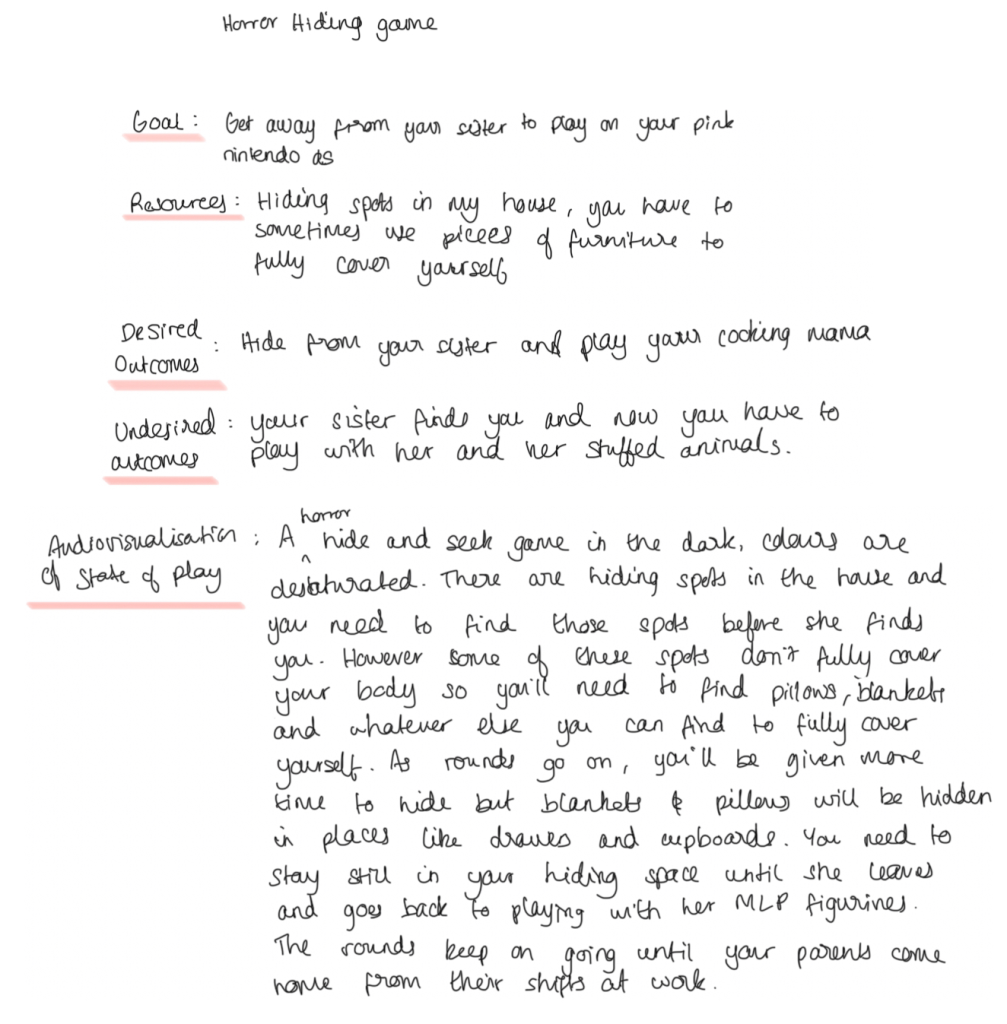 Horror Hiding game
Goal : Get away from your sister to play on your pink
nintendo ds
Resources : Hiding spots in my house, you have to
sometimes use pieces of furniture to
fully cover yourself
Desired
Outcomes : Hide from your sister and play your cooking mama
Undesired : your sister finds you and now you have to
outcomes play with her and her stuffed animals.
horror
Audiovisualisation : A ^ hide and seek game in the dark, colours are
of state of play desaturated. There are hiding spots in the house and
you need to find those spots before she finds
you. However some of these spots don't fully cover
your body so you'll need to find pillows, blankets
and whatever else you can find to fully cover
yourself. As rounds go on, you'll be given more
time to hide but blankets & pillows will be hidden
in places like drawes and cupboards. You need to
stay still in your hiding space until she leaves
and goes back to playing with her MLP figurines.
The rounds keep on going until your parents come
home from their shifts at work.